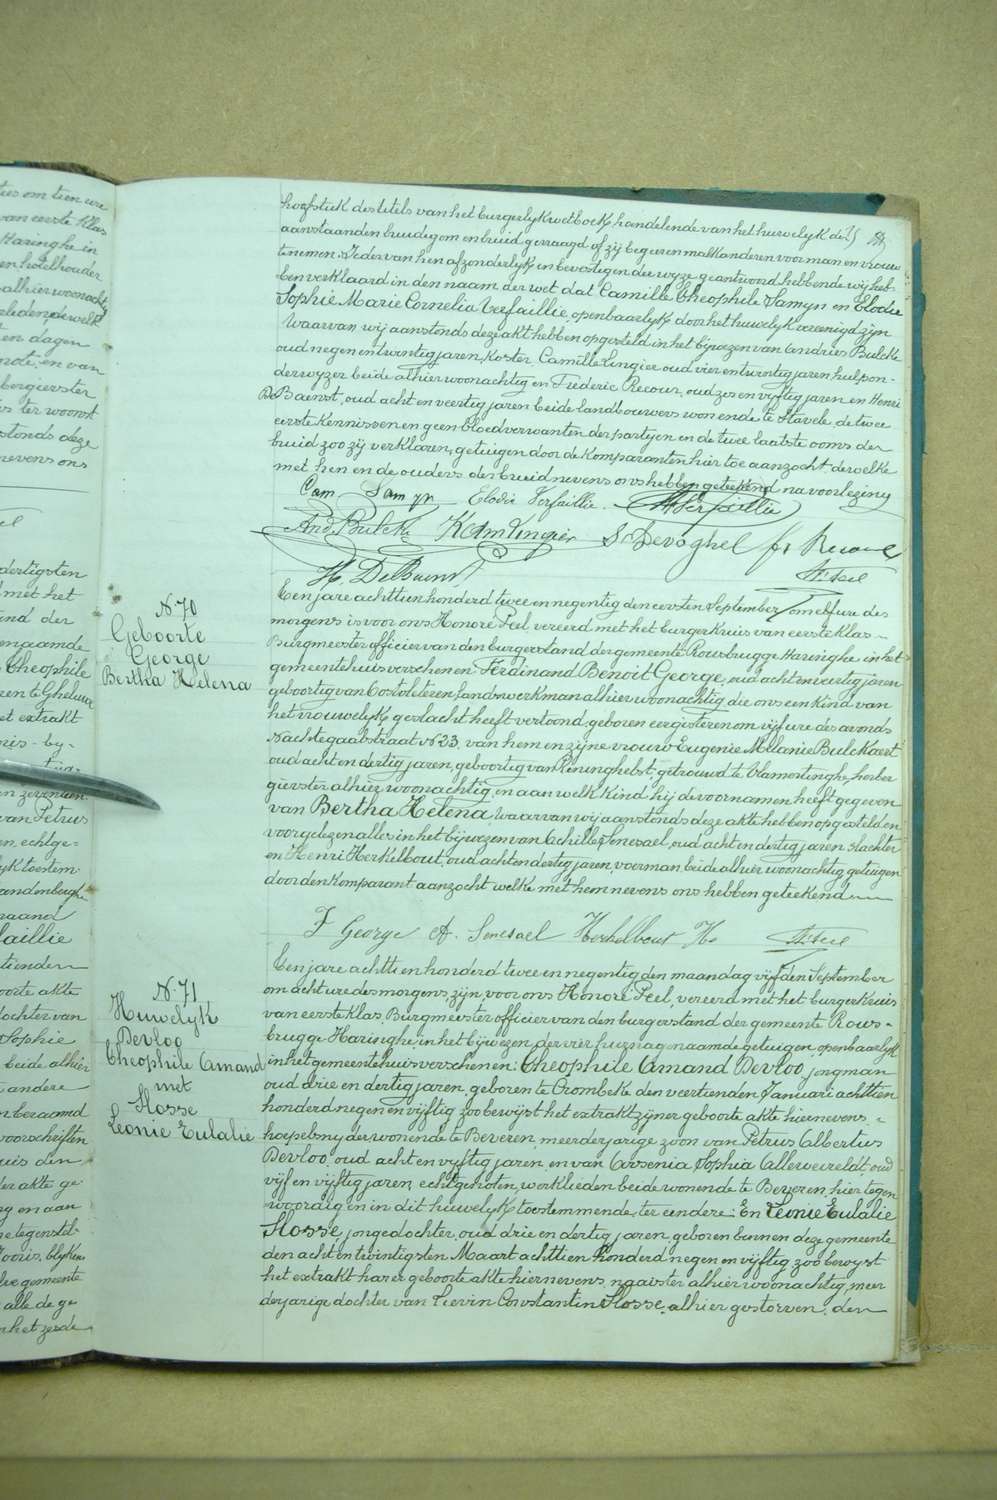 hoofstuk des titels van het burgerlyk wetboek, handelende van het huwelyk de
aanvolgenden bruidegom en bruid gevraagd of zij begeeren malkanderen voor man en vrouw
te nemen. Ieder van hen afzonderlyk en bevestigender wyze geantwoord hebbende wij heb-
ben verklaard in den naam der wet dat Camille Theophile Samyn en Elodie
Sophie Marie Cornelia Verfaillie, openbaarlyk door het huwelyk vereenigd zyn
Waarvan wij aanstonds deze akt hebben opgesteld in het bijwezen van Andries Bulcke
oud negen en twintig jaren, koster Camille Lingier oud vier en twintig jaren hulpon-
derwyzer beide alhier woonachtig en Frederic Recour, oud zes en vijftig jaren en Henri
De Baenst, oud acht en veertig jaren beide landbouwers wonende te Stavele, de twee
eerste kennissen en geen bloedverwanten der partyen en de twee laatste ooms der
bruid zoo zij verklaren, getuigen door de komparanten hier toe aanzocht dewelke
met hen en de ouders der bruid nevens ons hebben geteekend na voorlezing
Cam Samyn Elodie Verfaillie. Verfaillie
And. Bulcke Kam Lingier S Devoghel fr Recour
H. DeBaenst Hr Peel
N 70
Geboorte
George
Bertha Helena
Ten jare achttien honderd twee en negentig den eersten September om elf ure des
morgens is voor ons Honoré Peel vereerd met het burgerkruis van eerste klas
Burgmeester officier van den burgerstand der gemeente Rousbrugge Haringhe in het
gemeentehuis verschenen Ferdinand Benoit George, oud acht en veertig jaren
geboortig van Oostvleteren, landswerkman alhier woonachtig die ons een kind van
het vrouwelyk geslacht heeft vertoond, geboren eergisteren om vijf ure des avonds
Nachtegaalstraat N 23, van hem en zijne vrouw Eugenie Melanie Bulckaert
oud acht en dertig jaren, geboortig van Reninghelst, getrouwd te Vlamertinghe, herber
gierster alhier woonachtig, en aan welk kind hij de voornamen heeft gegeven
van Bertha Helena Waarvan wij aanstonds deze akte hebben opgesteld en
voorgelezen alles in het bijwezen van Achille Senesael, oud acht en dertig jaren slachter
en Henri Herkelbout, oud acht en dertig jaren, voerman beide alhier woonachtig getuigen
door den komparant aanzocht welke met hem nevens ons hebben geteekend
F George A. Senesael Herkelbout H. Hr Peel
N 71
Huwelyk
Devloo
Theophile Amand
met
Slosse
Leonie Eulalie
Ten jare achttien honderd twee en negentig den maandag vijfden September
om acht ure des morgens, zijn, voor ons Honoré Peel, vereerd met het burgerkruis
van eerste klas, Burgmeester officier van den burgerstand der gemeente Rous-
brugge Haringhe, in het bijwezen der vier hierna genaamde getuigen, openbaarlyk
in het gemeentehuis verschenen: Theophile Amand Devloo, jongman
oud drie en dertig jaren, geboren te Crombeke den veertienden Januari achttien
honderd negen en vijftig zoo bewijst het extrakt zijner geboorte akte hiernevens,
hoefsmyder wonende te Beveren, meerderjarige zoon van Petrus Albertus
Devloo, oud acht en vijftig jaren, en van Arsenia Sophia Alleweireldt, oud
vijf en vijftig jaren, echtgenoten, werklieden beide wonende te Beveren, hier tegen
woordig en in dit huwelyk toestemmende, ter eendere: En Leonie Eulalie
Slosse, jonge dochter, oud drie en dertig jaren, geboren binnen deze gemeente
den acht en twintigsten Maart achttien honderd negen en vijftig zoo bewyst
het extrakt harer geboorte akte hiernevens, naaister alhier woonachtig, meer
derjarige dochter van Lievin Constantin Slosse, alhier gestorven, den